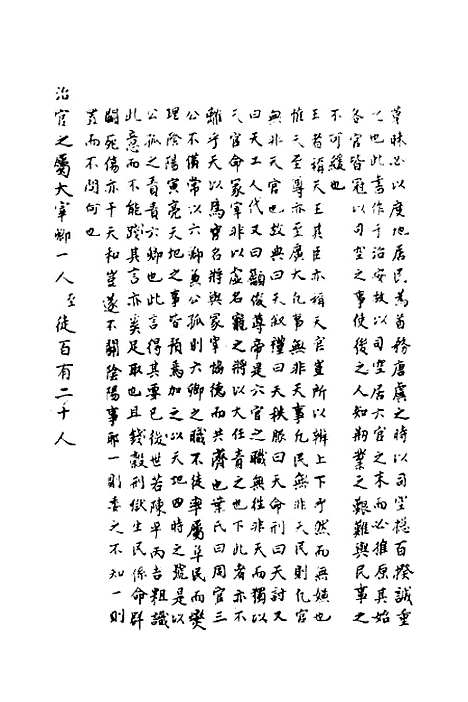 草昧必以度地居民為首務唐虞之時以司空總百揆誠重
之也此書作于治安故以司空居六官之末而必推原其始
各官皆冠以司空之事使後之人知剏業之艱難與民事之
不可緩也
王者稱天王其臣亦稱天官豈所以辨上下乎然而無嫌也
惟天至尊亦至廣大凡事無非天事凡民無非天民則凡官
無非天官也故典曰天叙禮曰天秩服曰天命刑曰天討又
曰天工人代又曰顯俊尊帝是六官之職無往非天而獨以
天官命冢宰非以虛名寵之將以大任責之也下此者亦不
離乎天以為官名將與冢宰協德而共濟也葉氏曰周官三
公不備常以六卿兼公孤則六卿之職不徒率屬阜民而燮
理陰陽寅亮天地之事皆預焉加之以天地四時之號是以
公孤之責責六卿也此言得其要已後世若陳平丙吉粗識
此意而不能踐其言亦奚足取也且錢穀刑獄生民係命群
鬬死傷亦干天和豈遂不關陰陽事耶一則委之不知一則
若而不問何也
治官之屬大宰卿一人至徒百有二十人